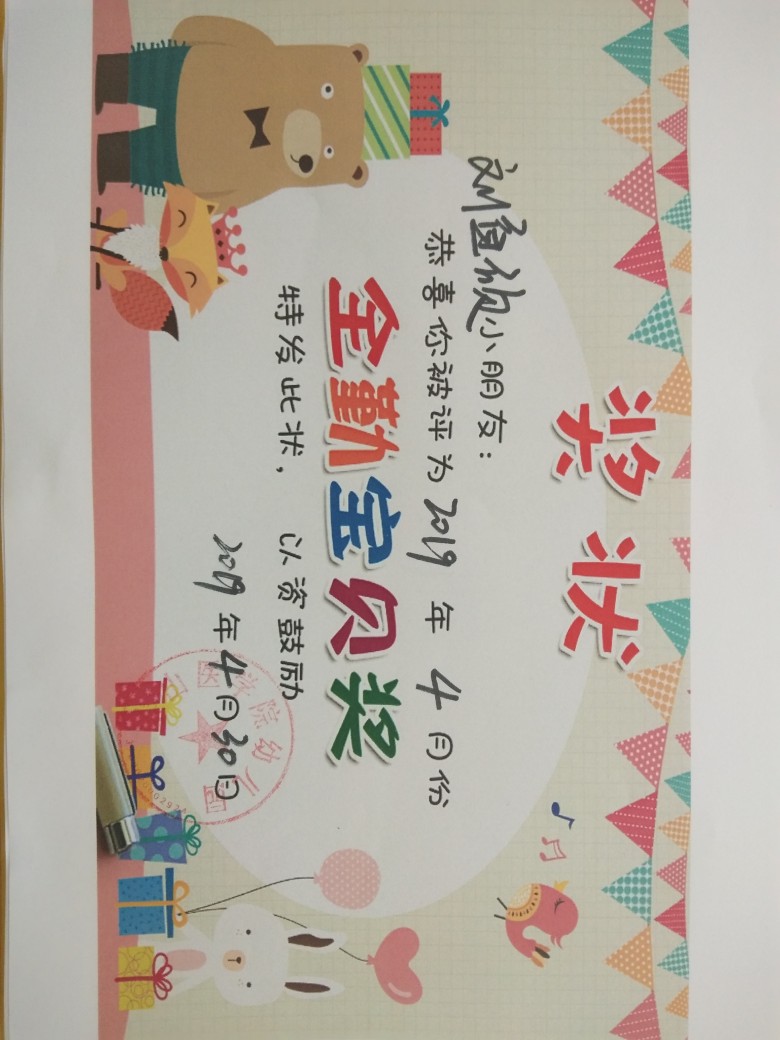 奖状
刘宣欣小朋友：
恭喜你被评为2019年4月份
全勤宝贝奖
特发此状，以资鼓励
2019年4月30日